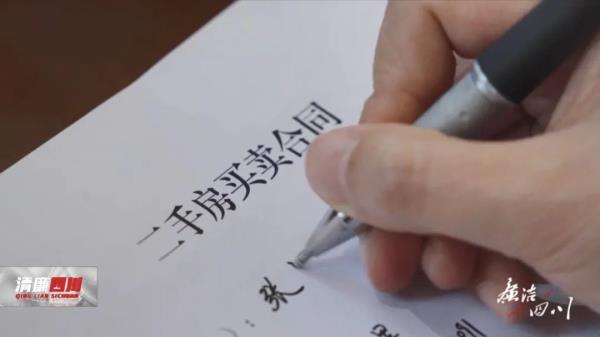 二手房买卖合同
：张
清廉四川
QING LIAN SICHUAN
廉洁
四川